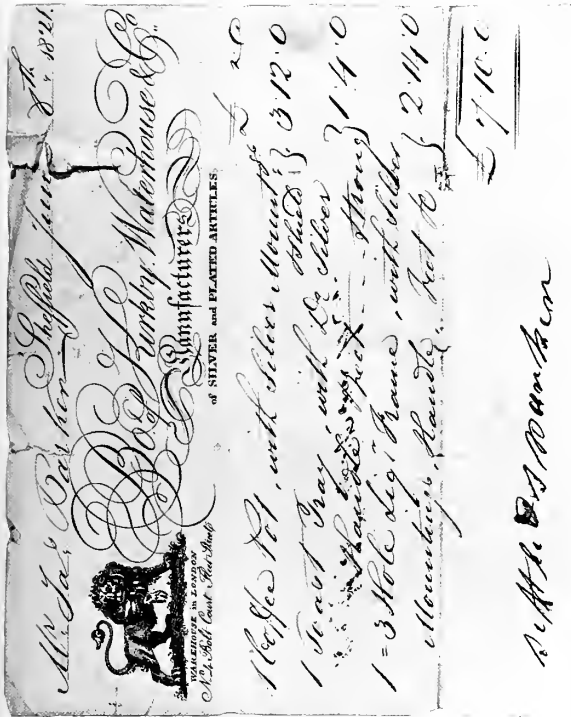 Mr Jas Barker
Sheffield June 8th 1821.
Bo.t of Kirkby, Waterhouse & Co.
Manufacturers
of SILVER and PLATED ARTICLES.
WAREHOUSE in LONDON
No. 4 Bolt Court Fleet Street
£ s D
1 Coffee Pot, with Silver Mountgs
& Shield } 3 12.0
1 Toast Tray, with Do Silver
Handle & Feet - - - strong } 1.4.0
1=3 Hole Frame, with Silver
Mountings, Handle, Feet &c } 2.14.0
£ 7.10.0